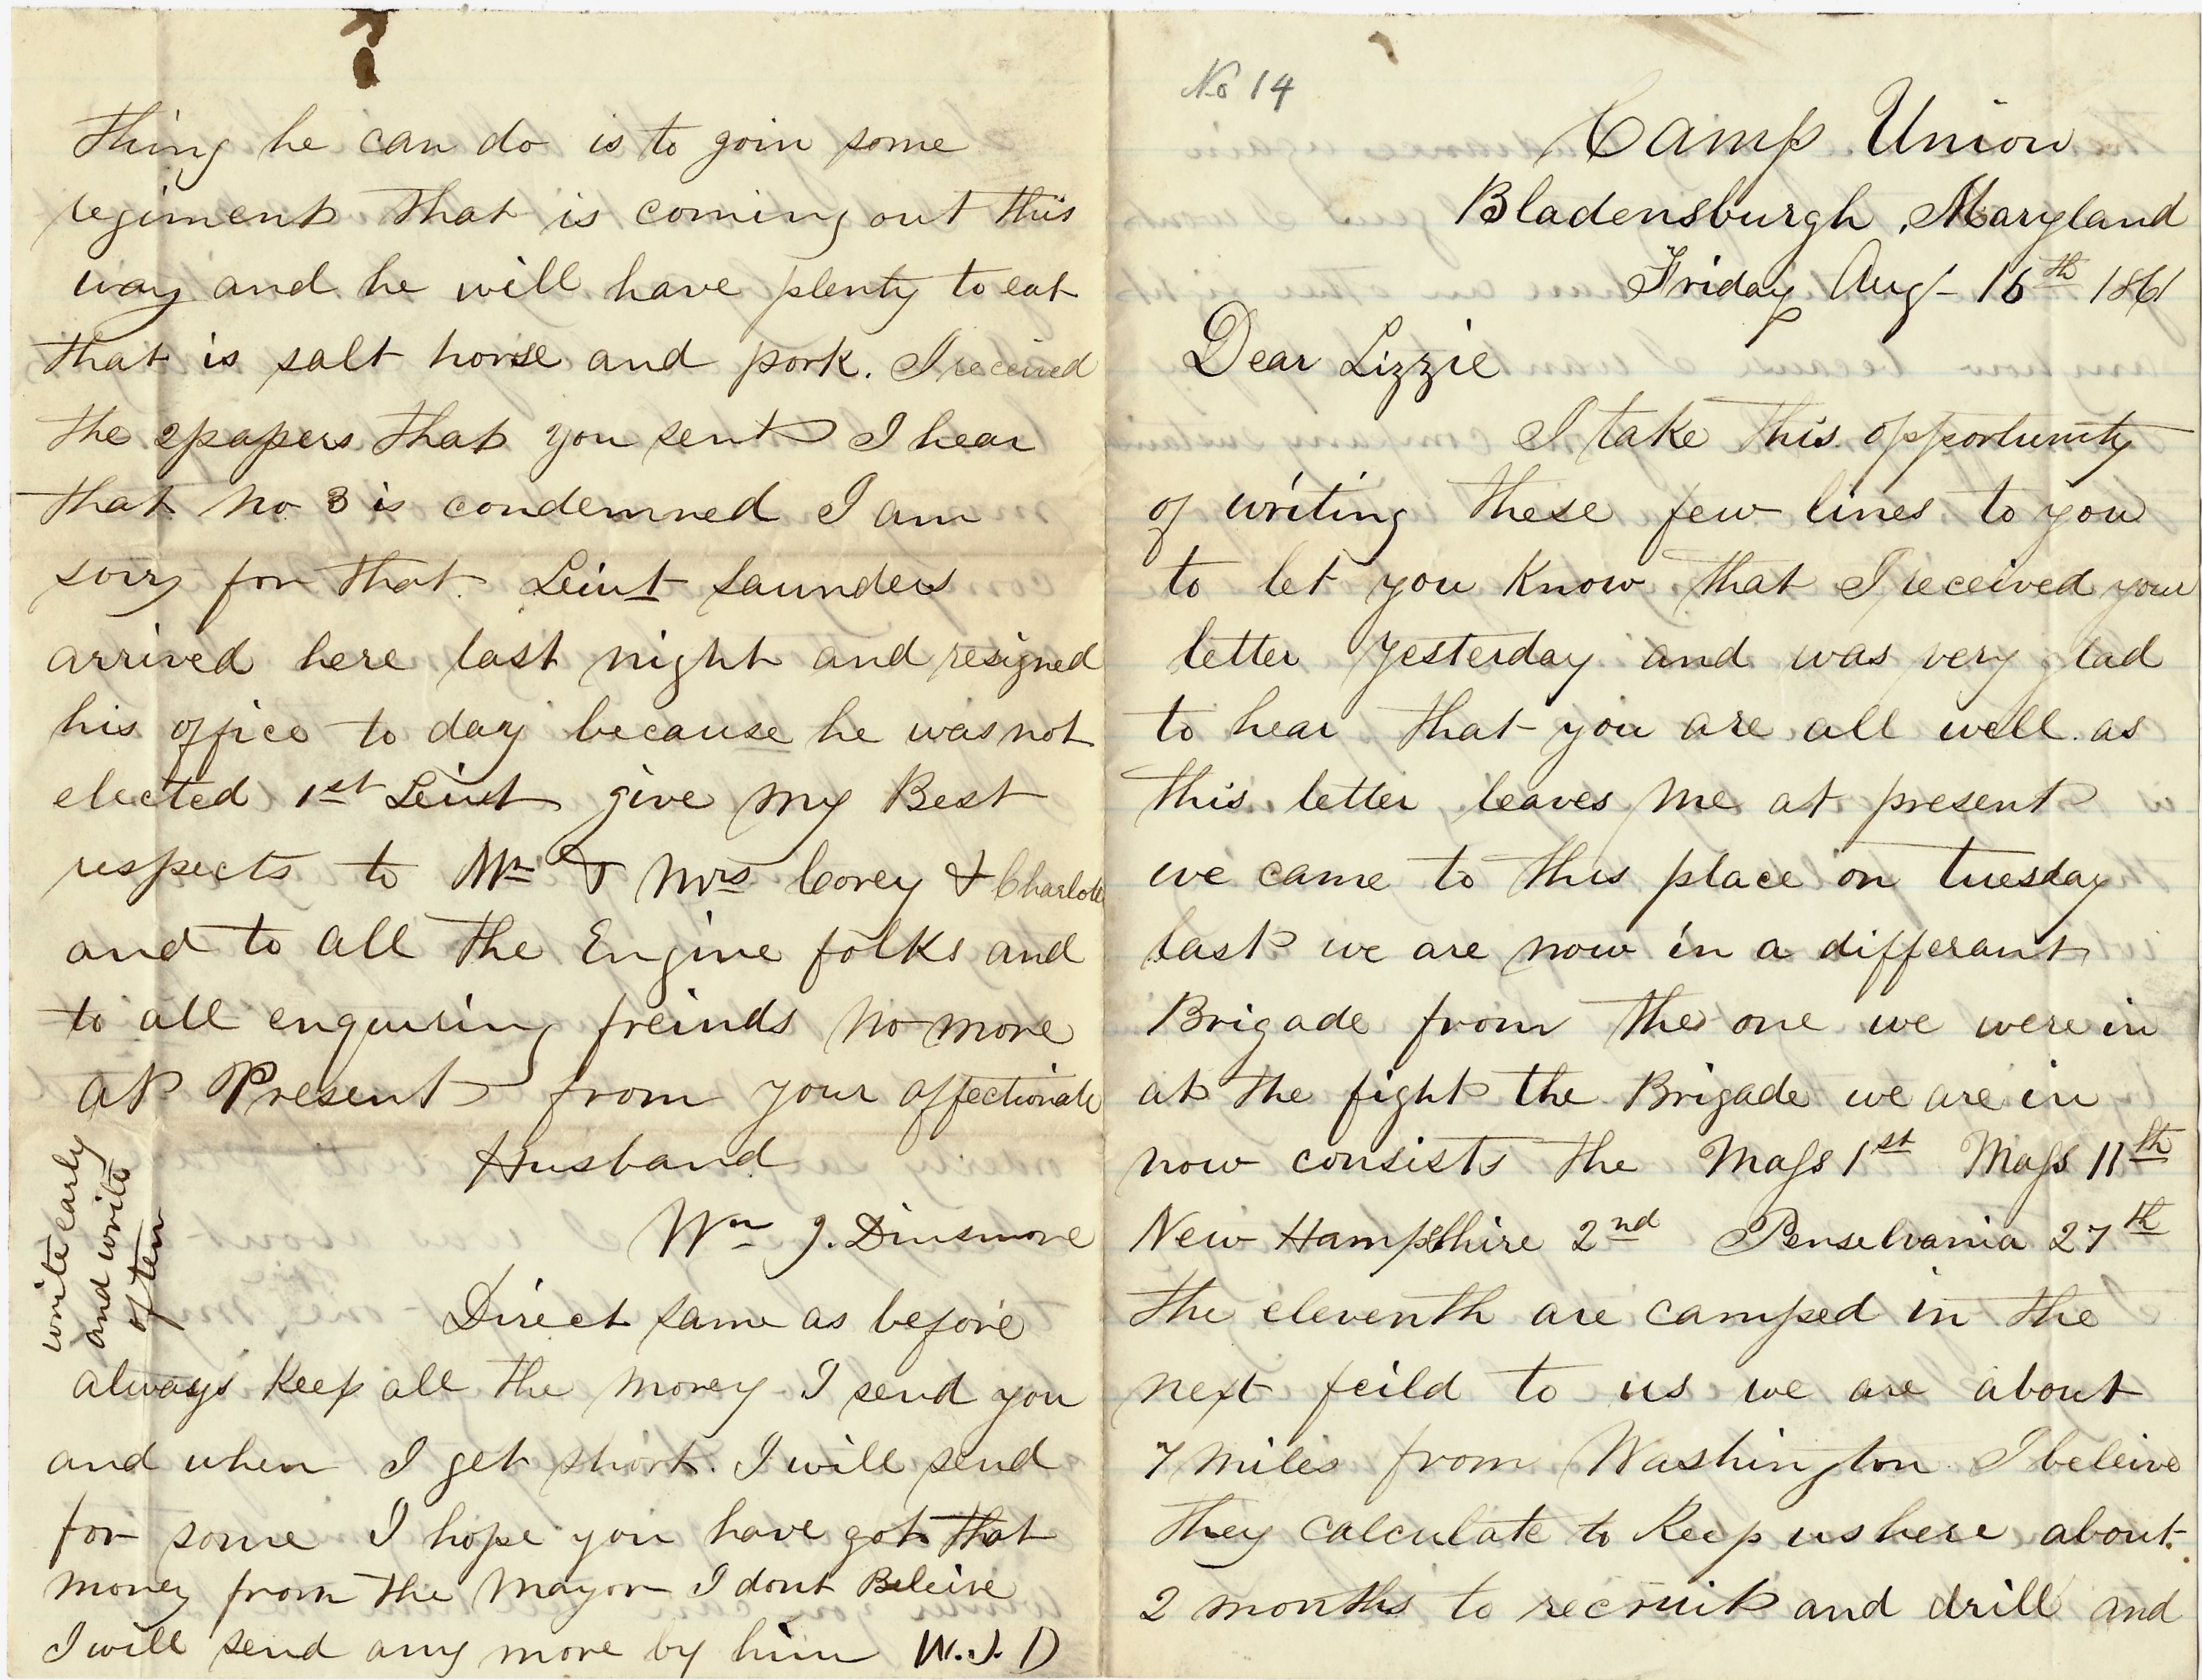 No 14
Camp Union
Bladensburgh, Maryland
Friday Aug 16th 1861
Dear Lizzie
I take this opportunity
of writing these few lines to you
to let you Know that I received your
letter yesterday and was very glad
to hear that you are all well as
this letter leaves me at present
we came to this place on tuesday
last we are now in a differant
Brigade from the one we were in
at the fight the Brigade we are in
now consists the Mass 1st Mass 11th
New Hampshire 2nd Penselvania 27th
the eleventh are camped in the
next feild to us we are about
7 miles from Washington I beleive
they calculate to Keep us here about
2 months to recruit and drill and
thing he can do is to goin some
regiment that is coming out this
way and he will have plenty to eat
that is salt horse and pork. I received
the 2 papers that you sent I hear
that No 3 is condemned I am
sorry for that Leiut Saunders
arrived here last night and resigned
his office to day because he was not
elected 1st Leiut give my Best
respects to Mr & Mrs Covey & Charlotte
and to all the Engine folks and
to all enquiring freinds No more
at Present from your affectionate
Husband
Wm J. Dinsmore
Direct same as before
always Keep all the money I send you
and when I get short. I will send
for some I hope you have got that
money from the Mayor I dont Beleive
I will send any more by him W.J.D
write early
and write
often